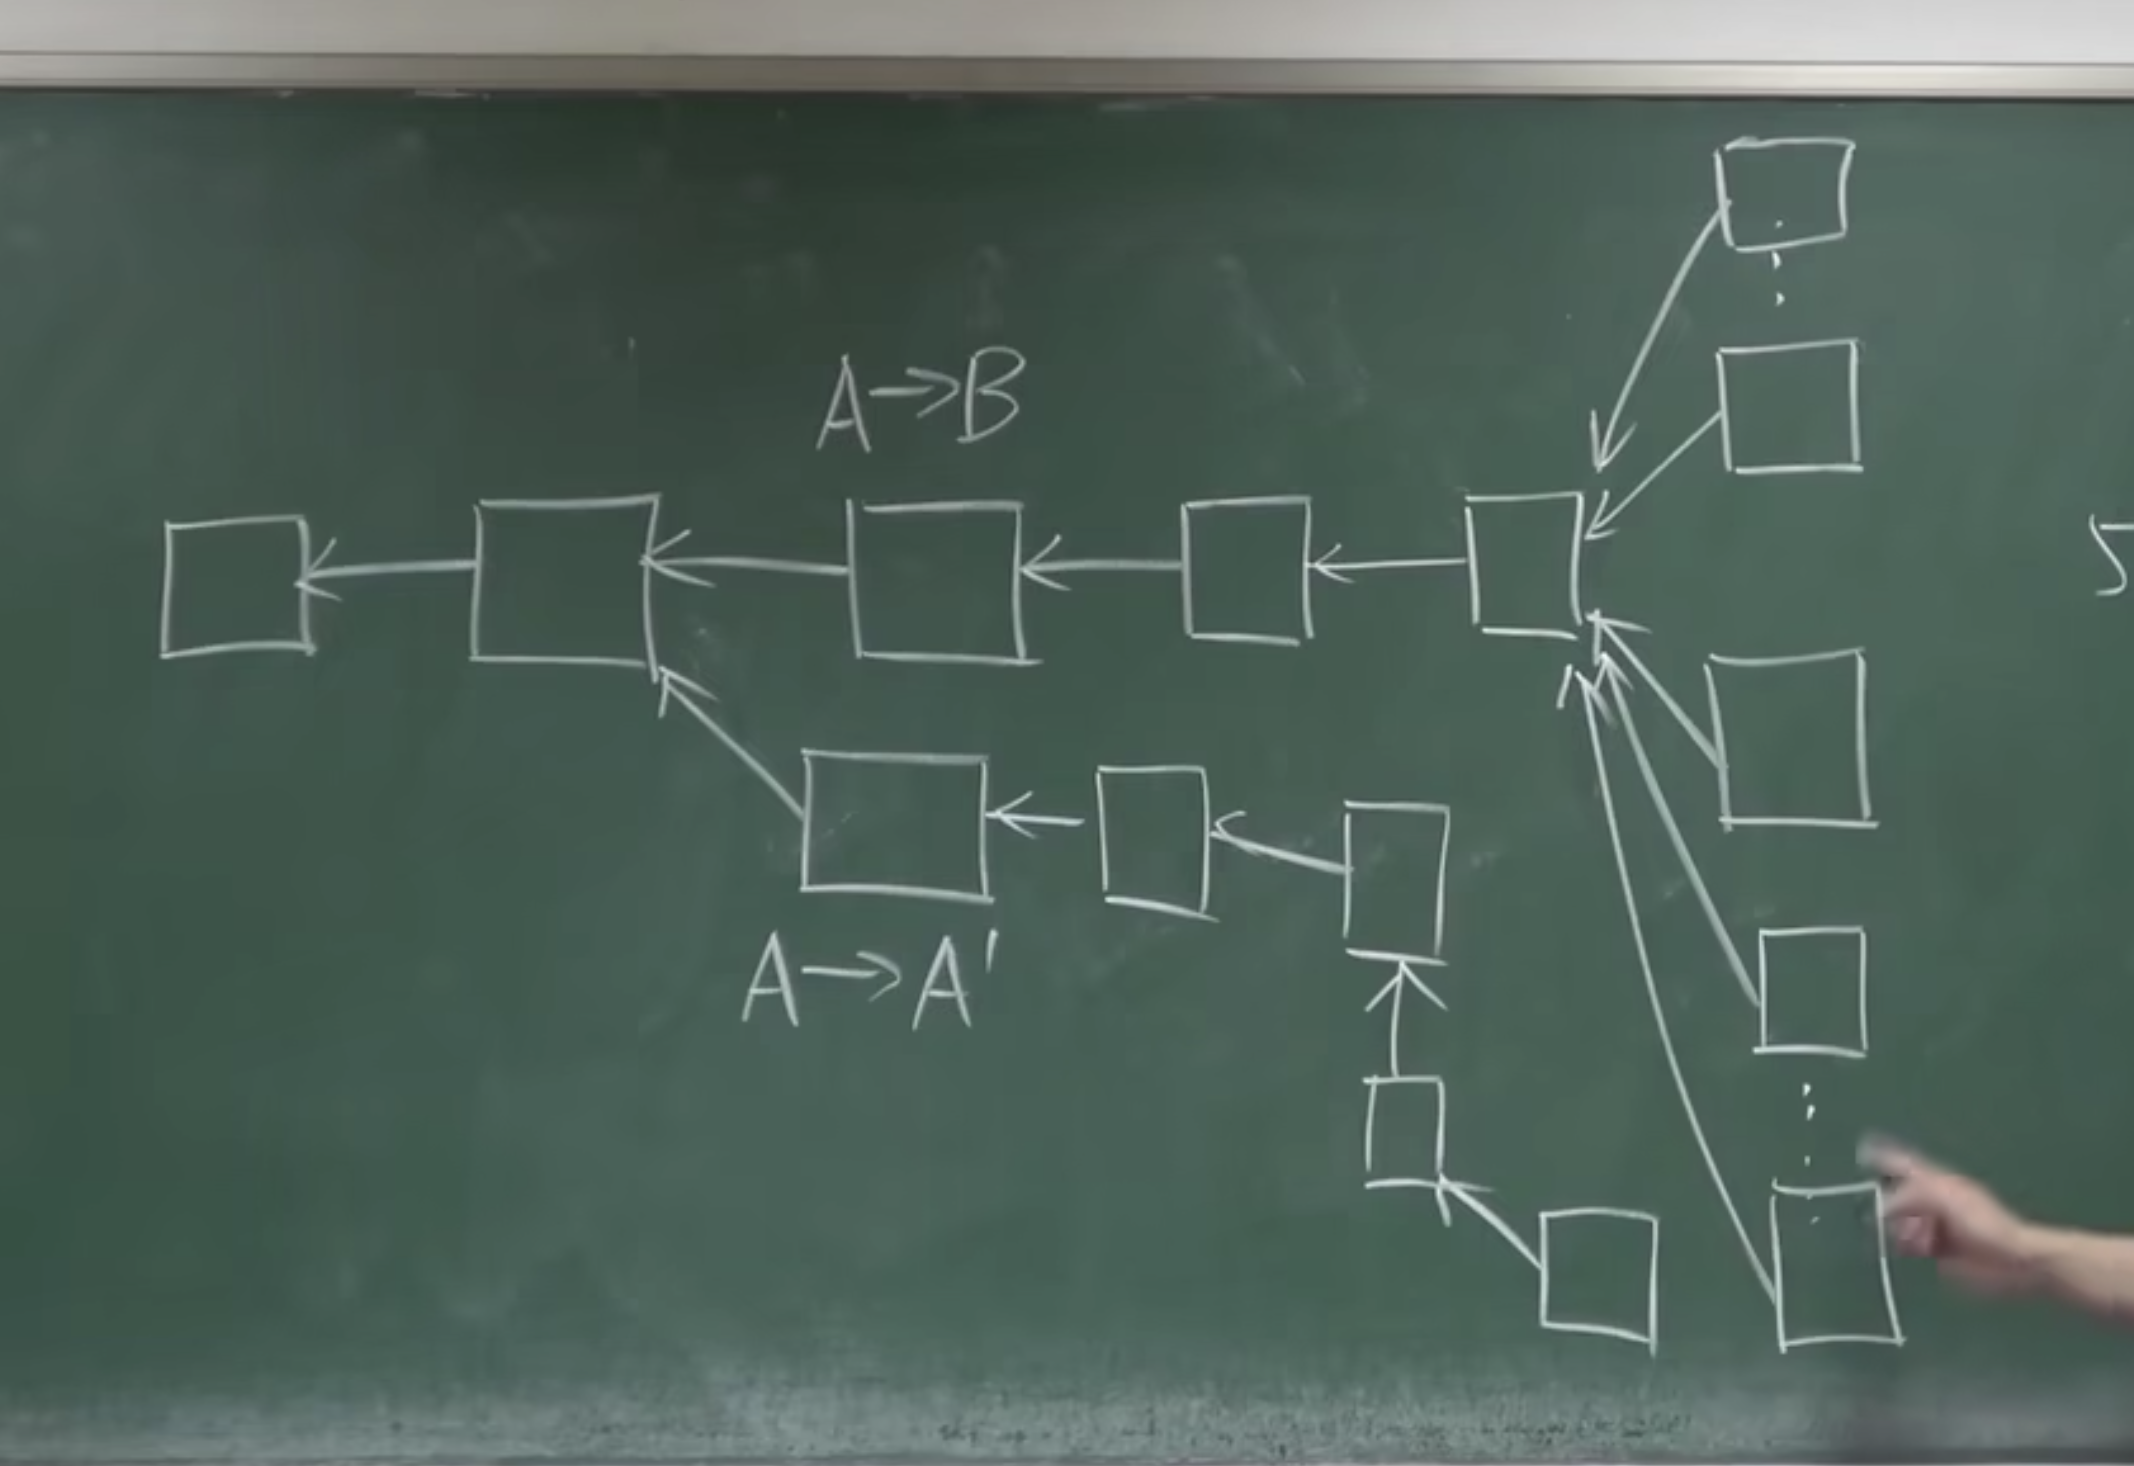 A→B
A→A'